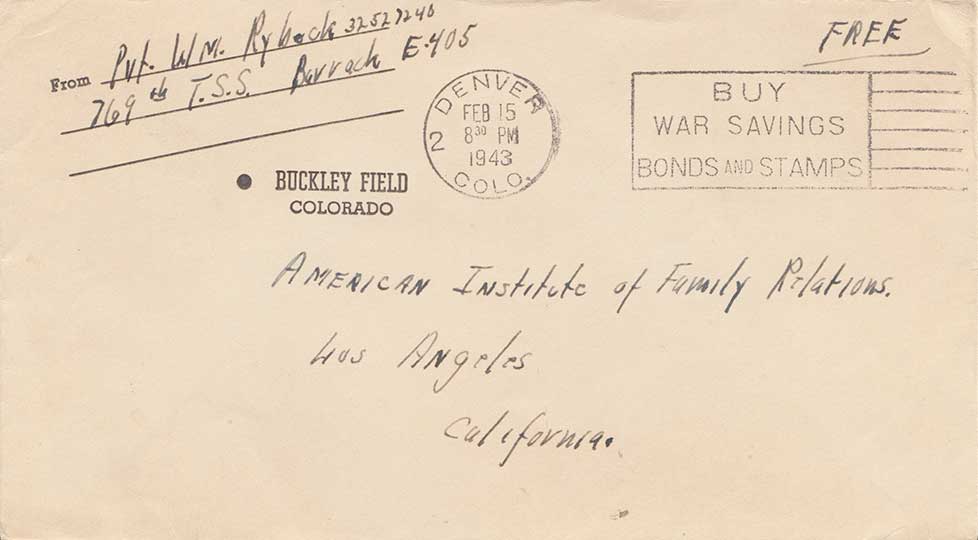 From Pvt. WM. Ryback 32527240
769 th T.S.S. Barrack E-405
BUCKLEY FIELD
COLORADO
DENVER
FEB 15
8 30 PM
1943
2
COLO.
FREE
BUY
WAR SAVINGS
BONDS AND STAMPS
AMERICAN Institute of Family Relations.
Los Angeles
California.